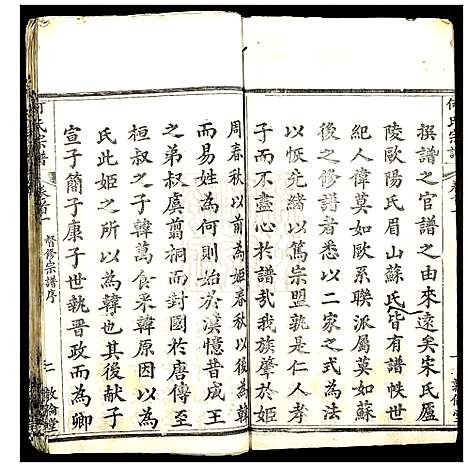 撰譜之官譜之由來遠矣宋氏廬
陵歐陽氏眉山蘇氏皆有譜帙世
紀人偉莫如歐系聯派屬莫如蘇
後之修譜者悉以二家之式為法
以恢先緒以篤宗盟孰是仁人孝
子而不盡心於譜哉我族肇於有
周春秋以前為姬春秋以後為韓
而易姓為何則始於漢憶昔成王
之弟叔虞剪桐而封國於唐傳至
桓叔之子韓萬食采韓原因以為
氏此姬之所以為韓也其後献子
宣子簡子康子世執晋政而為卿
何氏宗譜
卷首一
督修宗譜序
二
敦倫堂